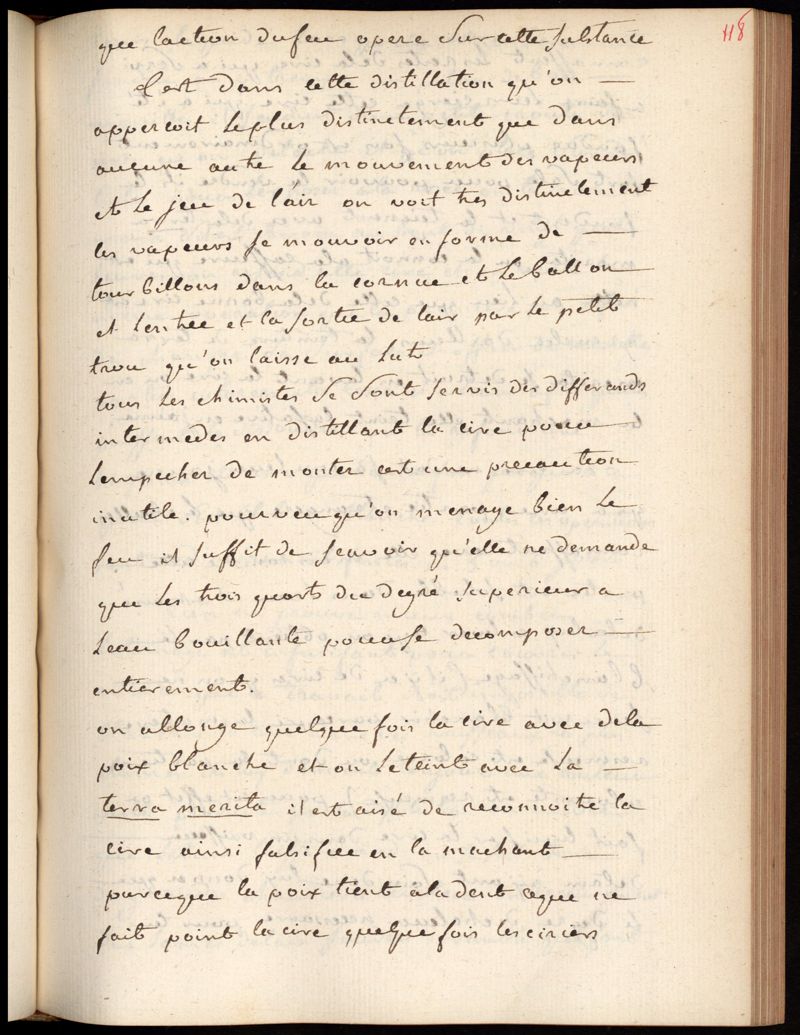 118
que laction du feu opere Sur cette substance
C'est dans cette distillation qu'on —
apperçoit le plus distinctement que dans
aucune autre le mouvement des vapeurs
et le jeu de l'air on voit tres distinctement
les vapeurs se mouvoir en forme de —
tourbillons dans la cornue et le ballon
et l'entrée et la sortie de lair par le petit
trou qu'on laisse au lut
tous les chimistes se sont servis des differands
intermedes en distillant la cire pour
lempecher de monter cest une precaution
inutile. pourveu qu'on menage bien le
feu il suffit de scavoir qu'elle ne demande
que les trois quarts du degré superieur a
leau bouillante pour se decomposer —
entierement.
on allonge quelque fois la cire avec dela
poix blanche et on le teint avec la —
terra merita il est aisé de reconnoitre la
cire ainsi falsifiée en la machant —
parceque la poix tient a la dent ceque ne
fait point la cire quelque fois les ciriers